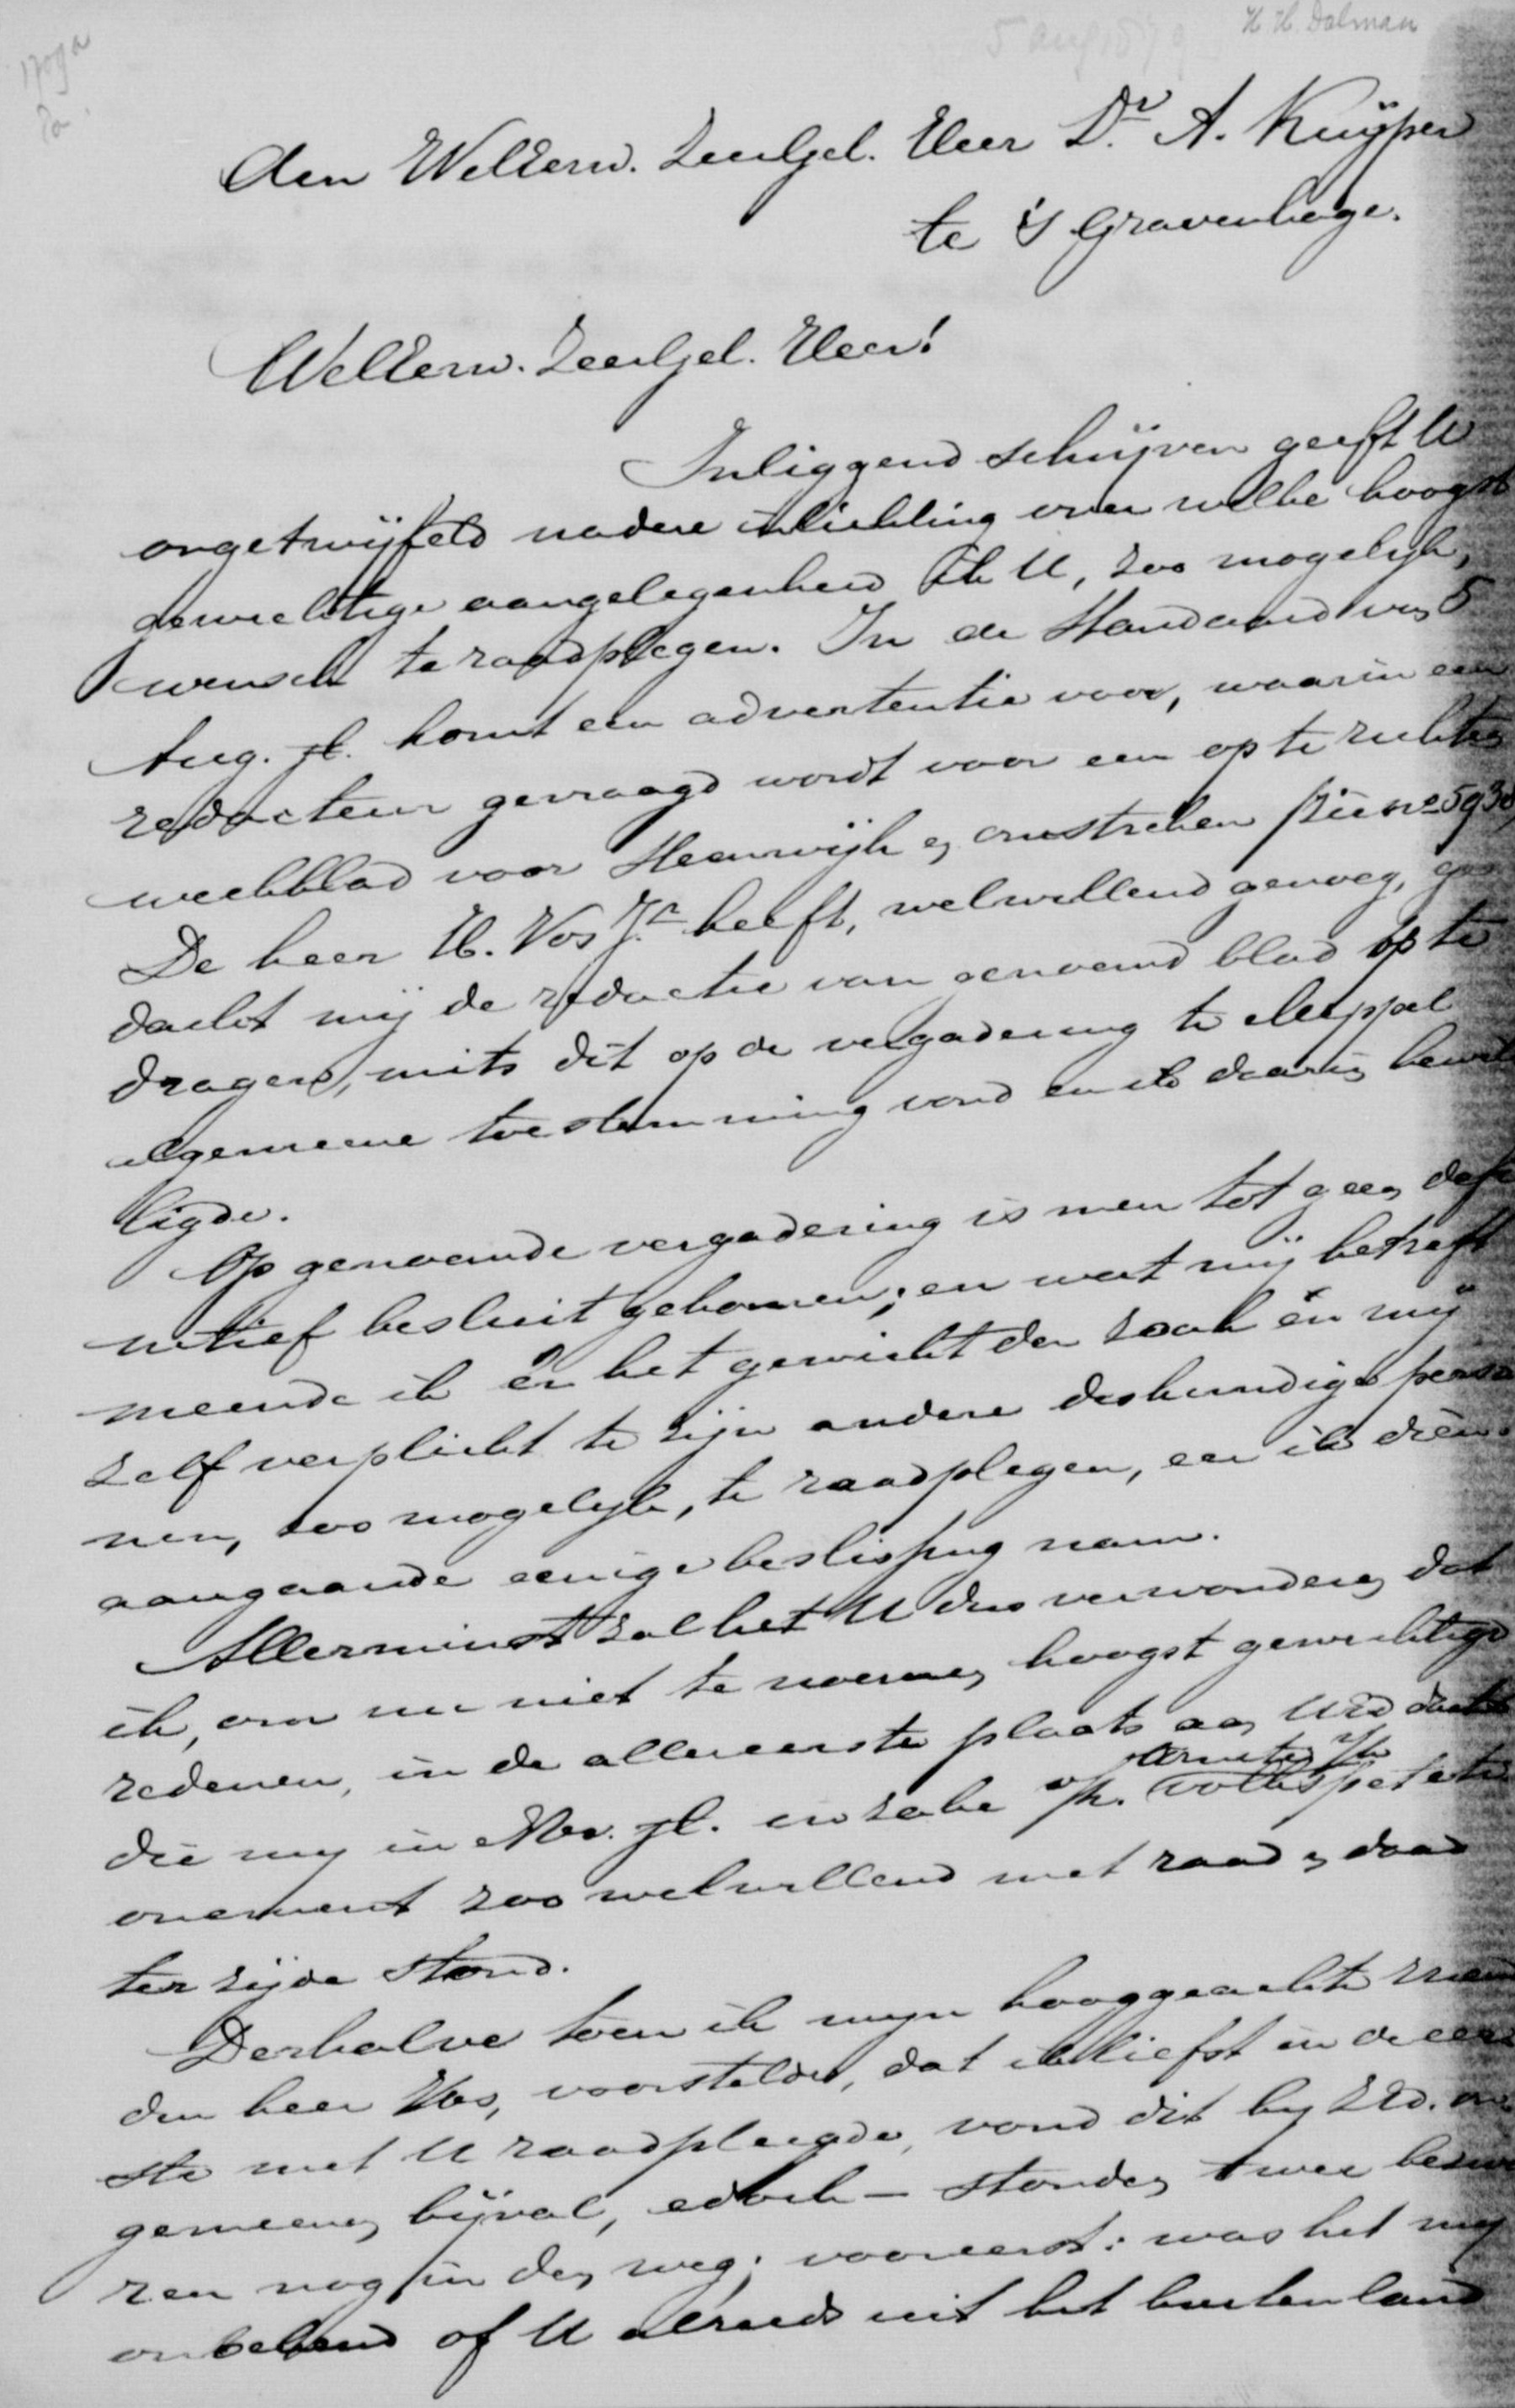 H. H. Dalman
5 aug 1879
Aan WelEerw. ZeerGel. Heer Dr. A. Kuyper
te 's Gravenhage.
WelEerw. ZeerGel. Heer!
Inliggend schrijven geeft U
ongetwijfeld nadere inlichting over welke hoogst
gewichtige aangelegenheid ik U, zoo mogelijk,
wensch te raadplegen. In de Standaard van 5
Aug. jl. komt een advertentie voor, waarin een
redacteur gevraagd wordt voor een op te richten
weekblad voor Steenwijk en omstreken (Zie no 5930)
De heer H. Vos Jr. heeft, welwillend genoeg, ge
dacht mij de redactie van genoemd blad op te
dragen, mits dit op de vergadering te Meppel
algemeene toestemming vond en ik daarin bewil
ligde.
Op genoemde vergadering is men tot geen defi
nitief besluit gekomen; en wat mij betreft
meende ik én het gewicht der zaak én mij
zelf verplicht te zijn andere deskundige perso
nen, zoo mogelijk, te raadplegen, eer ik dien
aangaande eenige beslissing nam.
Allerminst zal het U dus verwonderen dat
ik, om nu niet te noemen hoogst gewichtige
redenen, in de allereerste plaats aan UEd dacht
die mij in Nov. jl. in zake h/h. volkspetiti
onement zoo welwillend met raad en daad
ter zijde stond.
Derhalve toen ik mijn hooggeachte vriend
den heer Vos, voorstelde, dat ik liefst in de eer
ste met U raadpleegde, vond dit bij ZEd. on
gemeenen bijval, edoch — stonden twee bezwa
ren nog in den weg; vooreerst: was het mij
onbekend of U alreeds uit het buitenland